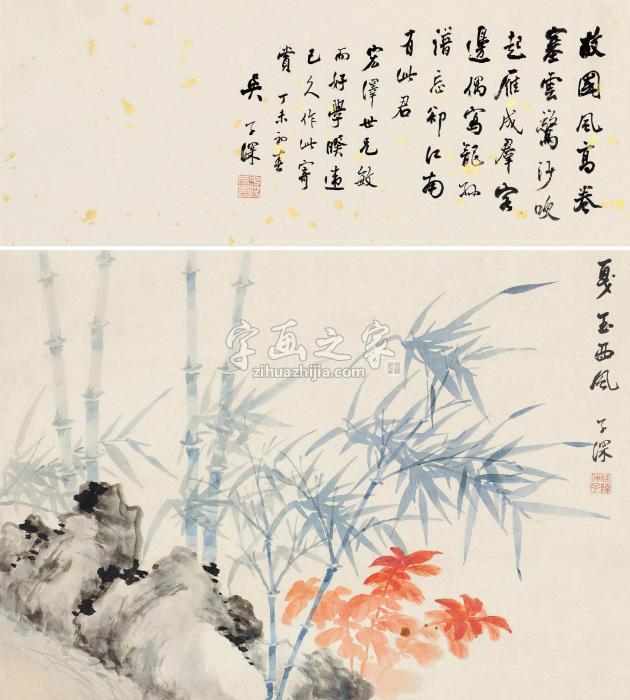 故國風高卷
塞雲驚沙吹
起雁成羣客
邊偶寫龍孫
譜忘却江南
有此君
宏澤世兄敏
而好學暌違
已久作此寄
賞 丁未初春
吳子深
戛玉西風 子深
字画之家
zihuazhijia.com